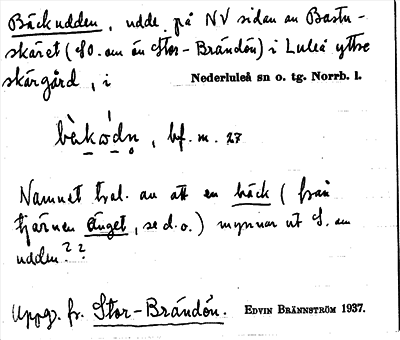 Bäckudden, udde på NV sidan av Bastu-
skäret (SO. om ön Stor-Brändön) i Luleå yttre
skärgård, i Nederluleå sn o. tg. Norrb. l.
bf. m. 27
Namnet av att en bäck (från
tjärnen Änget, se d.o.) mynnar ut S. om
udden??
Uppg. fr. Stor-Brändön. EDVIN BRÄNNSTRÖM 1937.